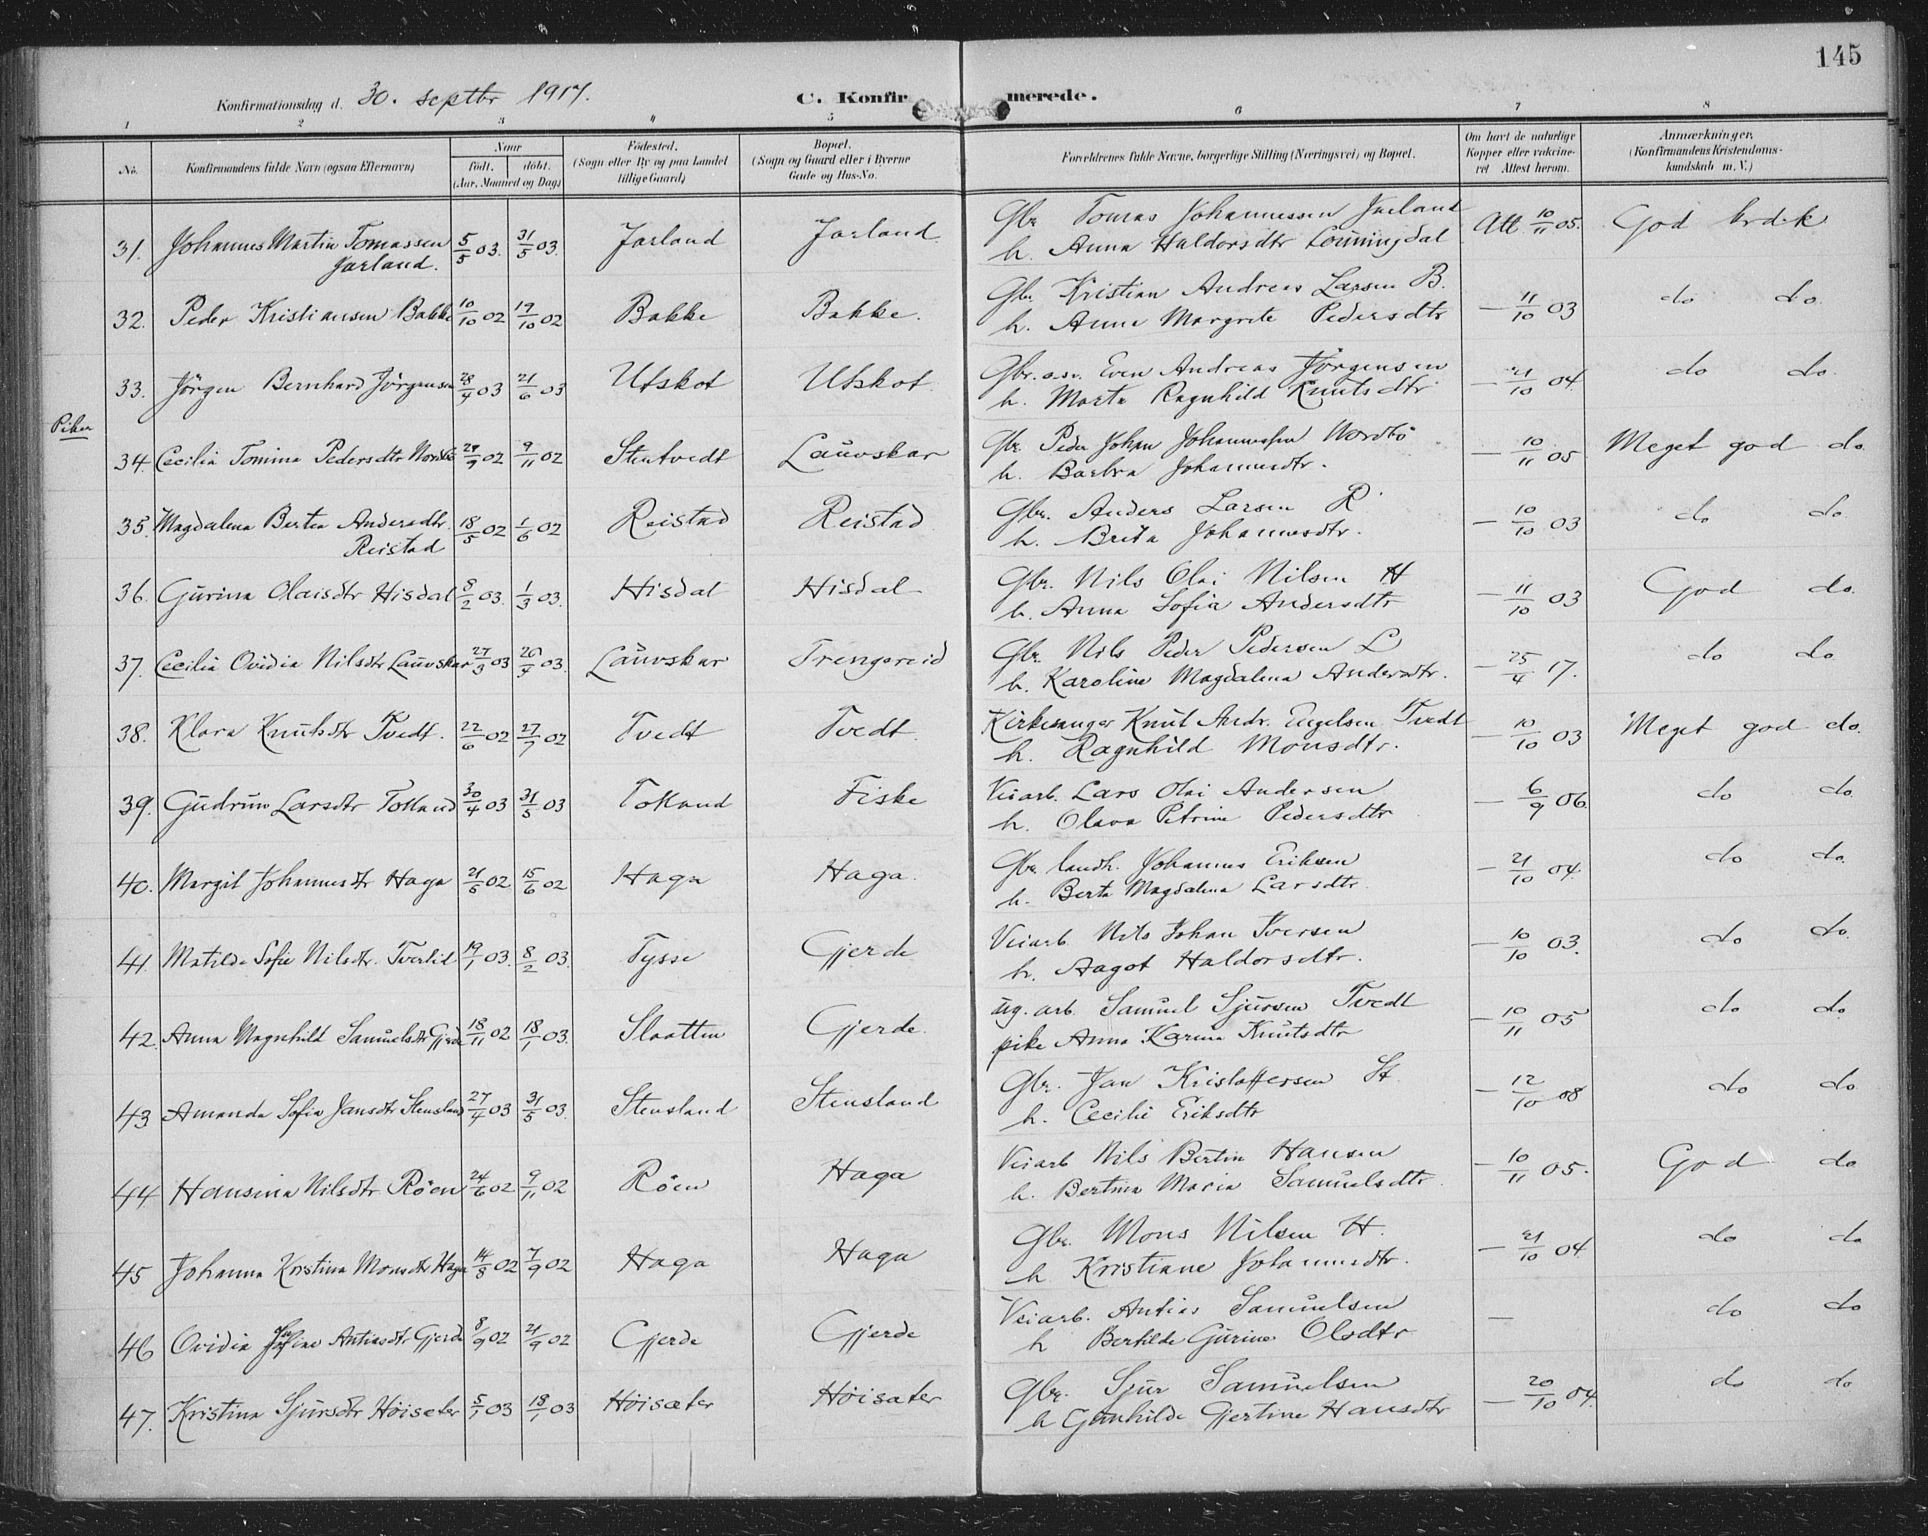 145
Konfirmationsdag d. 30. septbr 1917. C. Konfirmerede.
1 2 3 4 5 6 7 8
No. Konfirmandens fulde Navn (ogsaa Efternavn) Naar født. døbt. (Aar, Maaned og Dag) Fødested. (Sogn eller By og paa Landet tillige Gaard) Bopæl. (Sogn og Gaard eller i Byerne Gade og Hus-No. Forældrenes fulde Navne, borgerlige Stilling (Næringsvei) og Bopæl. Om havt de naturlige Kopper eller vaccineret Attest herom. Anmærkninger. (Konfirmandens Kristendomskundskab m. V.)
31. Johannes Martin Tomassen Jarland. 5/5 03. 31/5 03. Jarland Jarland Gbr Tomas Johannessen Jarland Att. 10/11 05. God
h. Anna Haldorsdtr
32. Peder Kristiansen Bakke 10/10 02 19/10 02 Bakke Bakke. Gbr. Kristian Andreas Larsen B. — 11/10 03 do do.
h. Anna Margrete Pedersdtr
33. Jörgen Bernhard Jörgensen 28/4 03 21/6 03 Utskot Utskot. Gbr. Even Andreas Jörgensen — 21/10 04. do do.
h. Marta Ragnhild Knutsdtr
Piker
34. Cecilia Tomina Pedersdtr Nordbö 29/9 02 9/11 02 Stentvedt Lauvskar Gbr. Peder Johan Johannessen Nordbö — 10/11 05 Meget god do.
h. Barbra Johannesdtr.
35. Magdalena Bertea Andersdtr. Reistad 18/5 02 1/6 02 Reistad Reistad Gbr. Anders Larsen R. — 10/10 03 do do
h. Brita Johannesdtr.
36. Gurina Olaisdtr Hisdal 8/2 03. 1/3 03. Hisdal Hisdal Gbr. Nils Olai Nilsen H — 11/10 03 God do.
h. Anna Sofia Andersdtr
37. Cecilia Ovidia Nilsdtr Lauvskar 27/3 03 26/4 03. Lauvskar Trengereid Gbr. Nils Peder Pedersen L — 25/4 17. do do
h. Karoline Magdalena Andersdtr.
38. Klara Knutsdtr Tvedt. 22/6 02 27/7 02 Tvedt Tvedt. Kirkesanger Knut Andr. Engelsen Tvedt — 10/10 03 Meget god do.
h. Ragnhild Monsdtr.
39. Gudrun Larsdtr Tokland 30/4 03 31/5 03 Tokland Fiske Veiarb. Lars Olai Andersen — 6/9 06. do do.
h. Olava Petrine Pedersdtr
40. Margit Johannesdtr Haga 21/5 02 15/6 02 Haga Haga. Gbr. landh. Johannes Eriksen — 21/10 04. do do.
h. Berta Magdalena Larsdtr.
41. Matilde Sofie Nilsdtr. Tverlid 19/1 03. 8/2 03. Tysse Gjerde Veiarb. Nils Johan Iversen — 10/10 03. do do.
h. Aagot Haldorsdtr.
42. Anna Magnhild Samuelsdtr Gjerde 18/11 02 18/1 03. Slaatten Gjerde. ug. arb. Samuel Sjursen Tvedt — 10/11 05 do do.
pike Anna Karina Knutsdtr
43 Amanda Sofia Jansdtr Stensland 27/4 03 31/5 03. Stensland Stensland Gbr. Jan Kristoffersen St. — 12/10 08 do do.
h. Cecilie Eriksdtr
44. Hansina Nilsdtr Röen 24/6 02 9/11 02 Röen Haga Veiarb Nils Bertin Hansen — 10/11 05. God do
h. Bertina Maria Samuelsdtr.
45 Johanna Kristina Monsdtr Haga 14/8 02 7/9 02 Haga Haga Gbr. Mons Nilsen H. — 21/10 04. do do
h. Kristiane Johannesdtr.
46 Ovidia Josefine Antiasdtr Gjerde 8/9 02 21/9 02 Gjerde Gjerde Veiarb. Antias Samuelsen — do do
h Bertilde Gurine Olsdtr
47. Kristina Sjursdtr Höiseter 5/1 03 18/1 03 Höisæter Höisæter Gbr. Sjur Samuelsen — 20/10 04. do do
h Gunhilde Gjertine Hansdtr